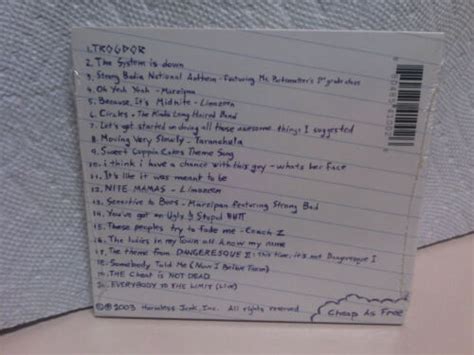 1. TROGDOR
2. The System is down
3. Strong Badia National Anthem - Featuring Ms. Parkenatter's 2nd grade class
4. Oh Yeah Yeah - Marzipan
5. Because, It's Midnite - Limozeen
6. Circles - The Kinda Long Haired Band
7. Let's get started on doing all those awesome things I suggested
8. Moving Very Slowly - Taranchula
9. Sweet Cuppin Cakes Theme Song
10. i think i have a chance with this guy - whats her face
11. It's like it was meant to be
12. NITE MAMAS - Limozeen
13. Sensitive to Bees - Marzipan featuring Strong Bad
14. You've got an Ugly & Stupid BUTT
15. These peoples try to fade me - Coach Z
16. The ladies in my Town all know my name
17. The theme from DANGERESQUE II: this time, it's not Dangeresque I
18. Somebody Told Me (Now I Believe Them)
19. THE Cheat is NOT DEAD
20. EVERYBODY TO THE LIMIT (Live)
© ℗ 2003 Harmless Junk, Inc. All rights reserved
Cheap As Free